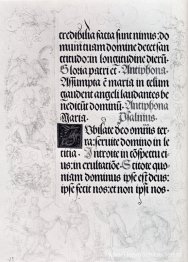 credibilia facta sunt nimis: do
mum tuam domine decet san
ctitudo: in longitudine dierũ.
Gloria patri et̃. Antiphona
Assumpta ẽ maria in celum
gaudent angeli laudantes be
nedicũt dominũ. Antiphona
Maria. Psalmus.
Iubilate deo omnis ter
ra: seruite domino in le
ticia. Introite in cõspectu ei
us: in exultatiõe. Scitote quo
niam dominus ipse est deus:
ipse fecit nos: et non ipsi nos.